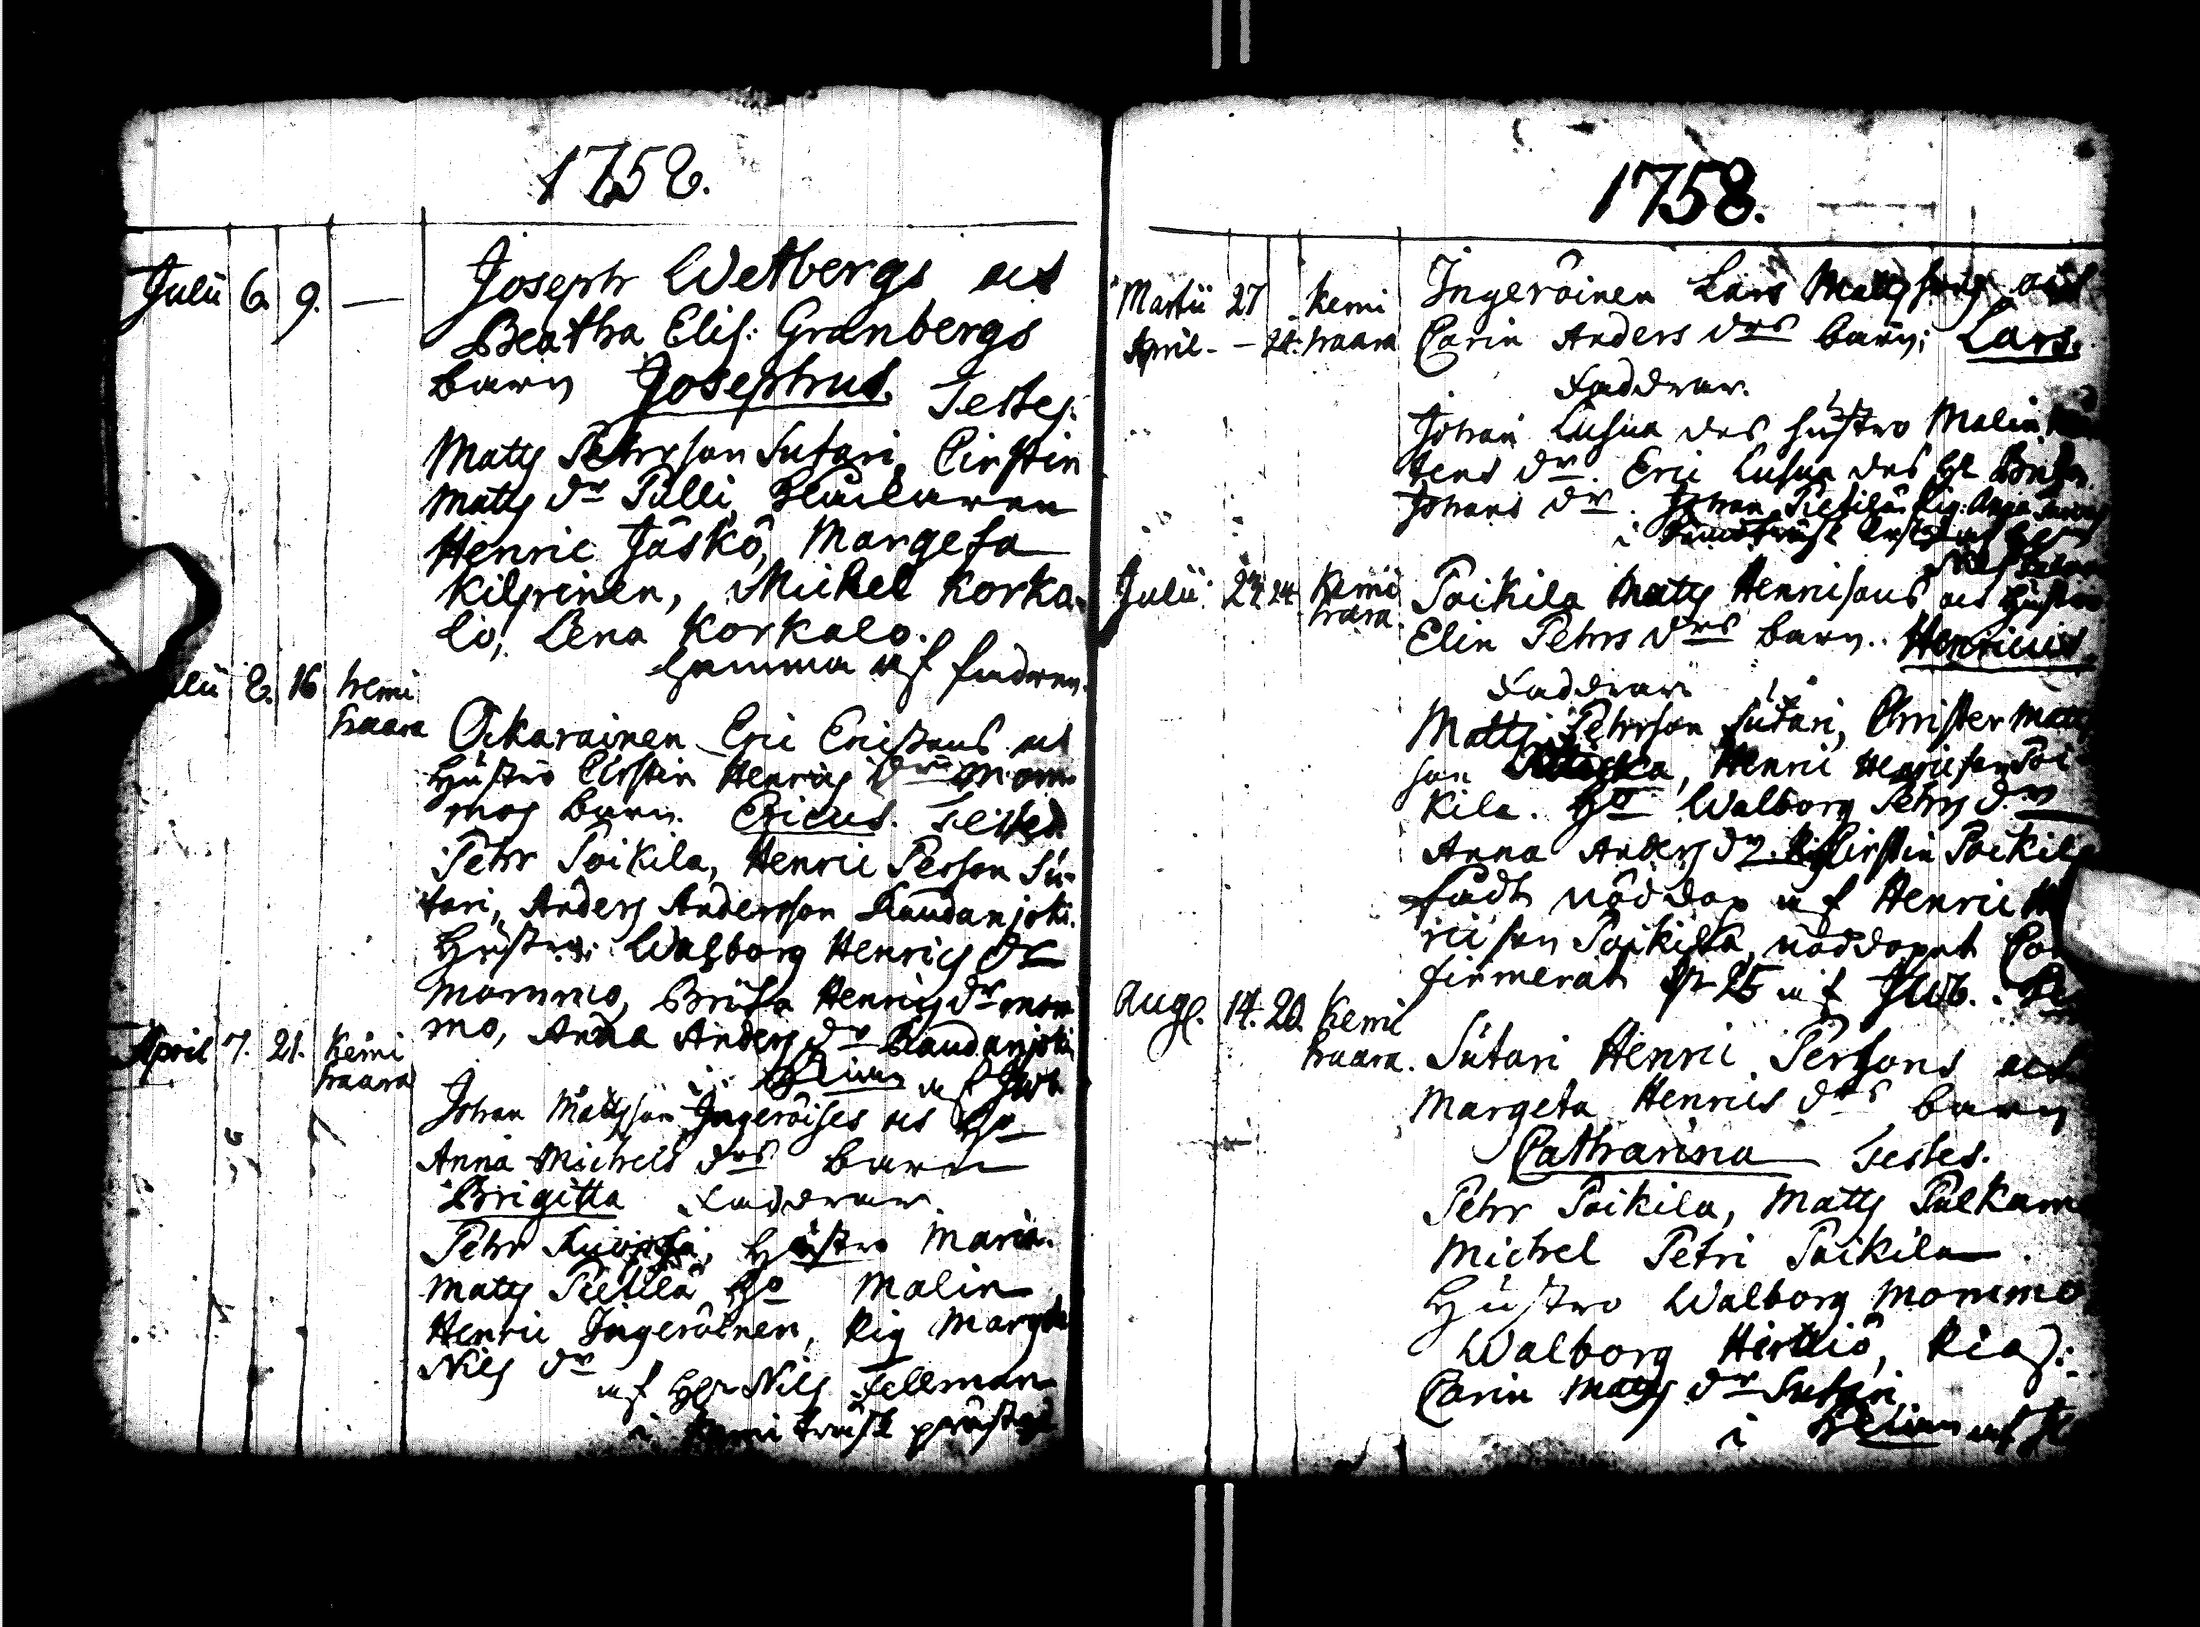 1758.
Julii 6. 9. — Joseph Wetbergs och
Beatha Elis: Granbergs
barn Josephus. Testes:
Matts Pehrsson Sutari, Cirstin
Matts dr Pulli,
Henric Jäskö, Margeta
Kilpinen, Michel Korka-
lo, Lena Korkalo.
af fadren.
8. 16 Kemi
haara Ockarainen Eric Ericsons och
Hustru Cirstin Henrics drs Mom-
mos barn Ericus. Testes
Pehr Poikila, Henric Person Su-
tari, Anders Andersson Raudanjoki.
Hustr: Walborg Henrics dr
Mommo, Britha Henrics dr Mom
mo, Anna Anders dr Raudanjoki
i af
April 7. 21. Kemi
haara
Johan Mattsson Ingeröises och Ho
Anna Michels drs barn
Brigitta Faddrar.
Pehr Hustro Maria.
Matts Pietilä Ho Malin
Henric Ingeröinen, Pig Margeta
Nils dr
af Hr Nils Fellman
i Kemi träsk prästgd
1758.
Martii 27 Kemi Ingeröinen Lars Mattssons och
April - 24. haara Carin Anders drs barn: Lars.
Faddrar.
Johan Lusua des hustro Malin
tens dr. Eric Lusua des H
Johans dr. Johan Pietilä Pig:
i
Julii 24 24 Kemi Poikila Matts Henricsons och Hustru
haara. Elin Pehrs drs barn. Henricus.
Faddrar
Matts Pehrson Sutari, Christer Matts
son Henric Henricson Poi-
kila. Ho Walborg Pehrs dr
Anna Anders dr. Pig Cirstin Poikila
nöddop af Henric
ricson Poikila, nöddopet Co
firmerat 25 af
Aug. 14. 20. Kemi
haara. Sutari Henric Persons och
Margeta Henrics drs barn
Catharina Testes.
Pehr Poikila, Matts Pulkam
Michel Petri Poikila
Hustro Walborg Mommo
Walborg Hirttiö, Pig:
Carin Matts dr Sutari
i af